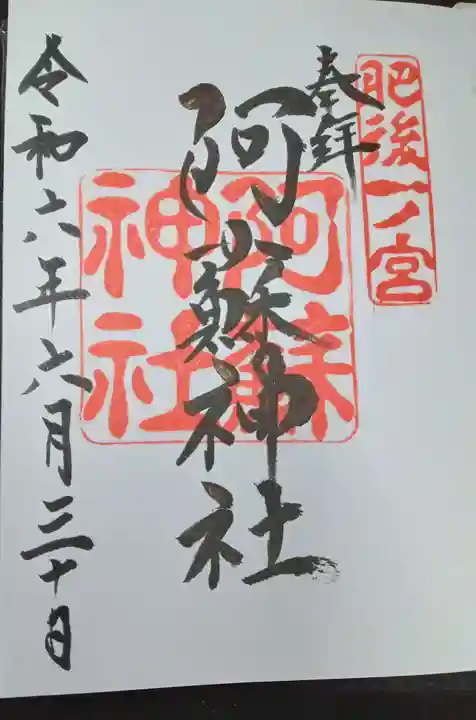 肥後一ノ宮
奉拝
阿蘇神社
阿蘇神社
令和六年六月三十日